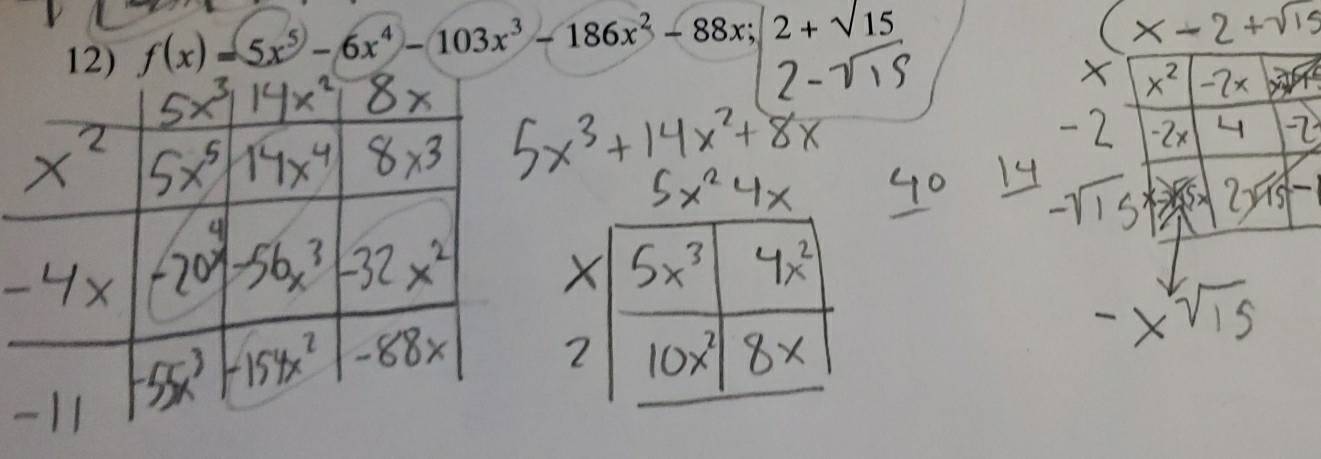 12) f(x) = 5x⁵ − 6x⁴ − 103x³ − 186x² − 88x; 2 + √15
2 - √15
5x³ 14x² 8x
x² 5x⁵ 14x⁴ 8x³
-4x -20x⁴ -56x³ -32x²
-11 -55x³ -154x² -88x
5x³ + 14x² + 8x
40 14
5x² 4x
x 5x³ 4x²
2 10x² 8x
(x - 2 + √15
x x² -2x
-2 -2x 4
-√15 2√15
-x√15